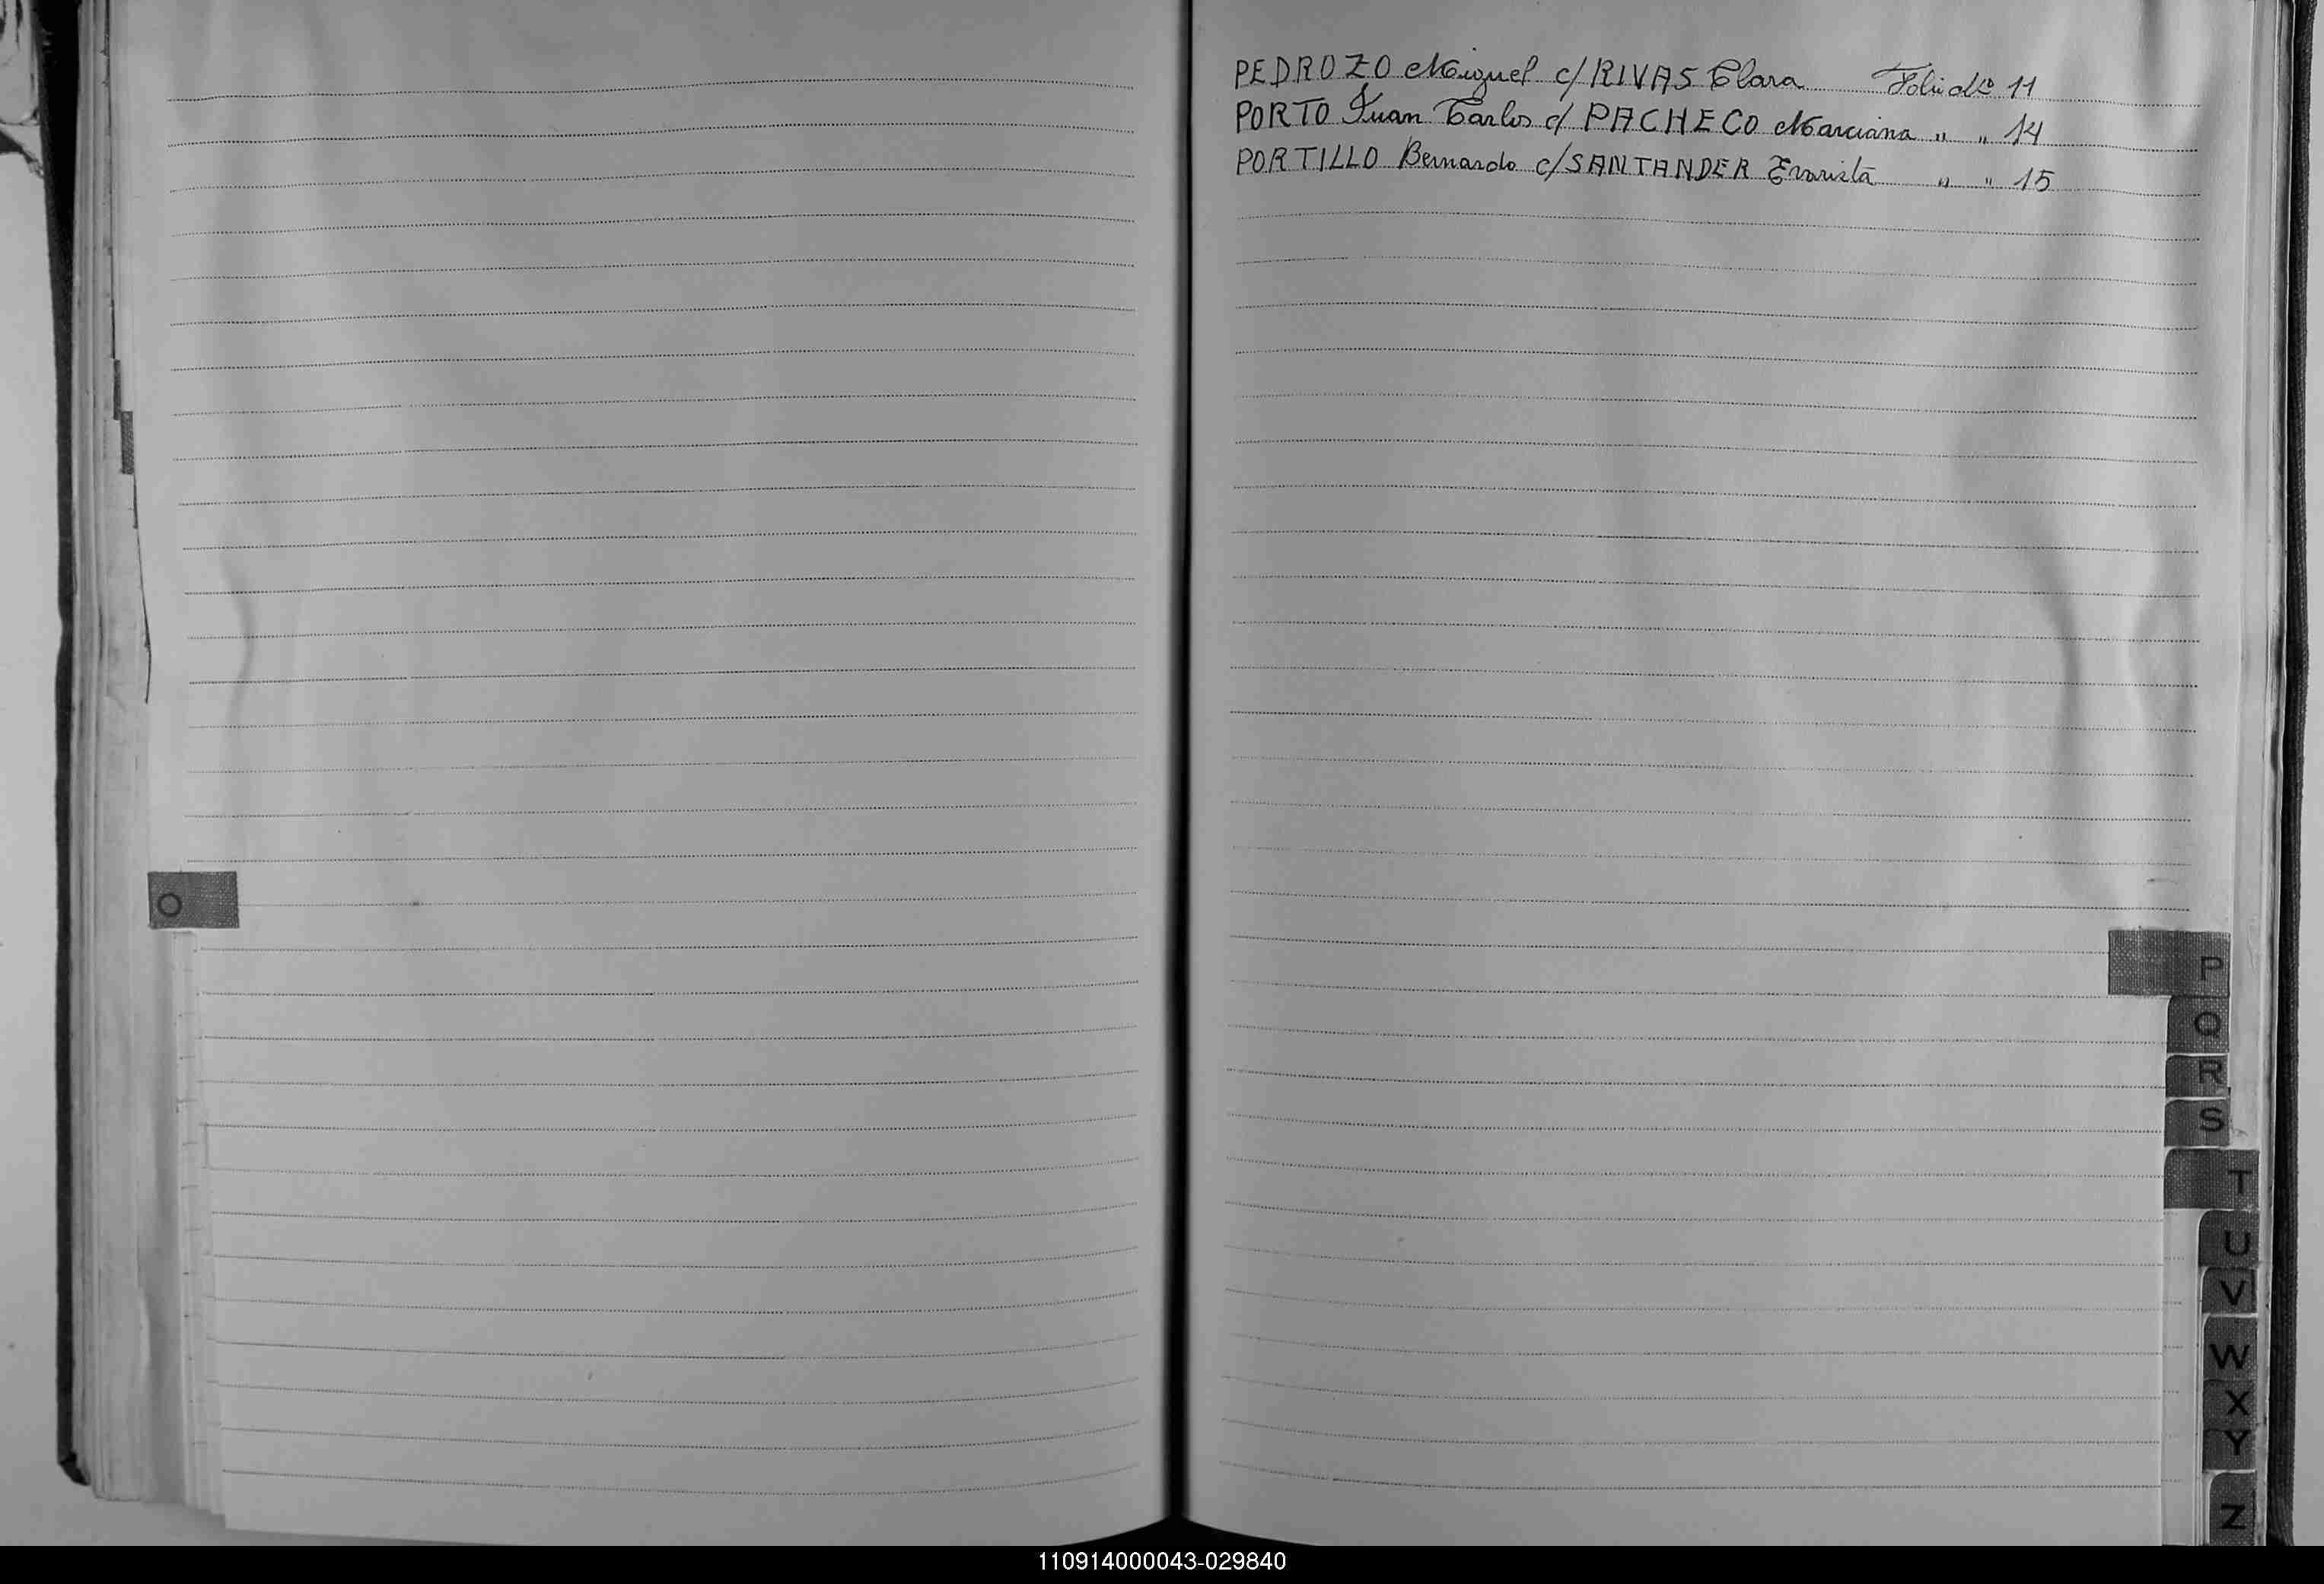 PEDROZO Miguel c/ RIVAS Clara Folio Nº 11
PORTO Juan Carlos c/ PACHECO Marciana " " 14
PORTILLO Bernardo c/ SANTANDER Evarista " " 15
O
P
Q
R
S
T
U
V
W
X
Y
Z
110914000043-029840